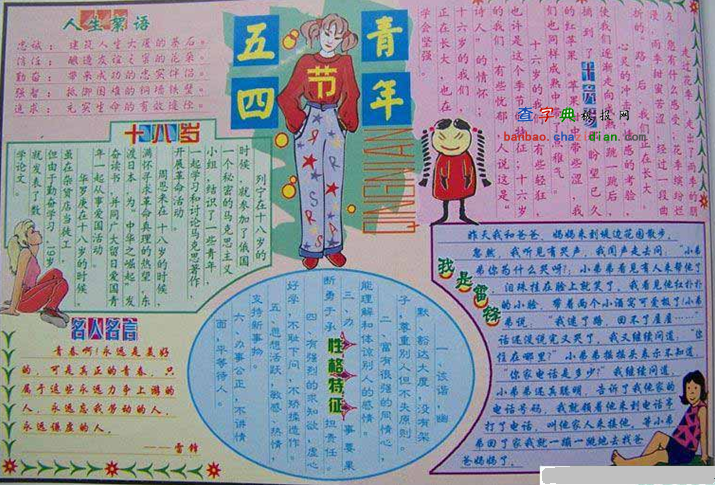 人生絮语
忠诚：建筑人生大厦的基石。
信任：酿造友谊之蜜的花朵。
勤奋：带来成功的忠实伴侣。
强智：抵御困难的铜墙铁壁。
追求：充实生命的有效途径。
五四
青年
节
QINGNIAN
十八岁
列宁在十八岁的
时候，就参加了俄国
一个秘密的马克思主义
小组，结识了一些青年，
一起学习和讨论马克思著作，
开展革命活动。
周恩来在十八岁的时候
满怀寻求革命真理的热望，东
渡日本，为“中华之崛起”发
奋读书，并同广大留日爱国青
年一起从事爱国活动。
华罗庚在十八岁的时候
虽在杂货店当徒工，
但由于勤奋学习，19岁
就发表了数
学论文。
名人名言
青春啊！永远是美好
的，可是真正的青春，只
属于这些永远力争上游的
人，永远忘我劳动的人，
永远谦虚的人。
——雷锋
性格特征
一、诙谐，幽
默，豁达大度，没有架
子，尊重别人但不失原则。
二、富有很强的同情心，
能理解和体谅别人的感情。
三、办事要果
断勇于承担责任。
四、有强烈的求知欲，虚心
好学，不耻下问，不矫揉造作。
五、思想活跃，敏感，热情，
支持新事物。
六、办事公正，不讲情
面，平等待人。
十六岁
走过花季，走出了雨季的朋
友，您有什么感受，花季缤纷烂
漫，雨季甜蜜苦涩，经过一段曲
折的“路”后，我们正在长大，
心灵的冲击，情感的考验，
使我们逐渐走向成熟
查字典手抄报网
banbao.chazidian.com
我是雷锋
昨天我和爸爸、妈妈来到堤边花园散步，
忽然，我听见有哭声，我闻声走去问：“小弟
弟你为什么哭呀？”小弟弟看见有人来帮他了
，泪珠挂在脸上就笑了，我看见他红扑扑
的小脸，带着两个小酒窝可爱极了！小
弟弟说：“我迷了路，回不了屋……”
话没说完又哭了，我又继续问道：“你
住在哪里？”小弟弟摇摇头表示不知道。
“你家电话是多少？”我继续问道，
小弟弟还真聪明，告诉了我他家的
电话号码，我就领着他来到电话亭
打了电话，叫他家人来接他，等小弟
弟回了家我就一蹦一跳地去找爸
爸妈妈了。